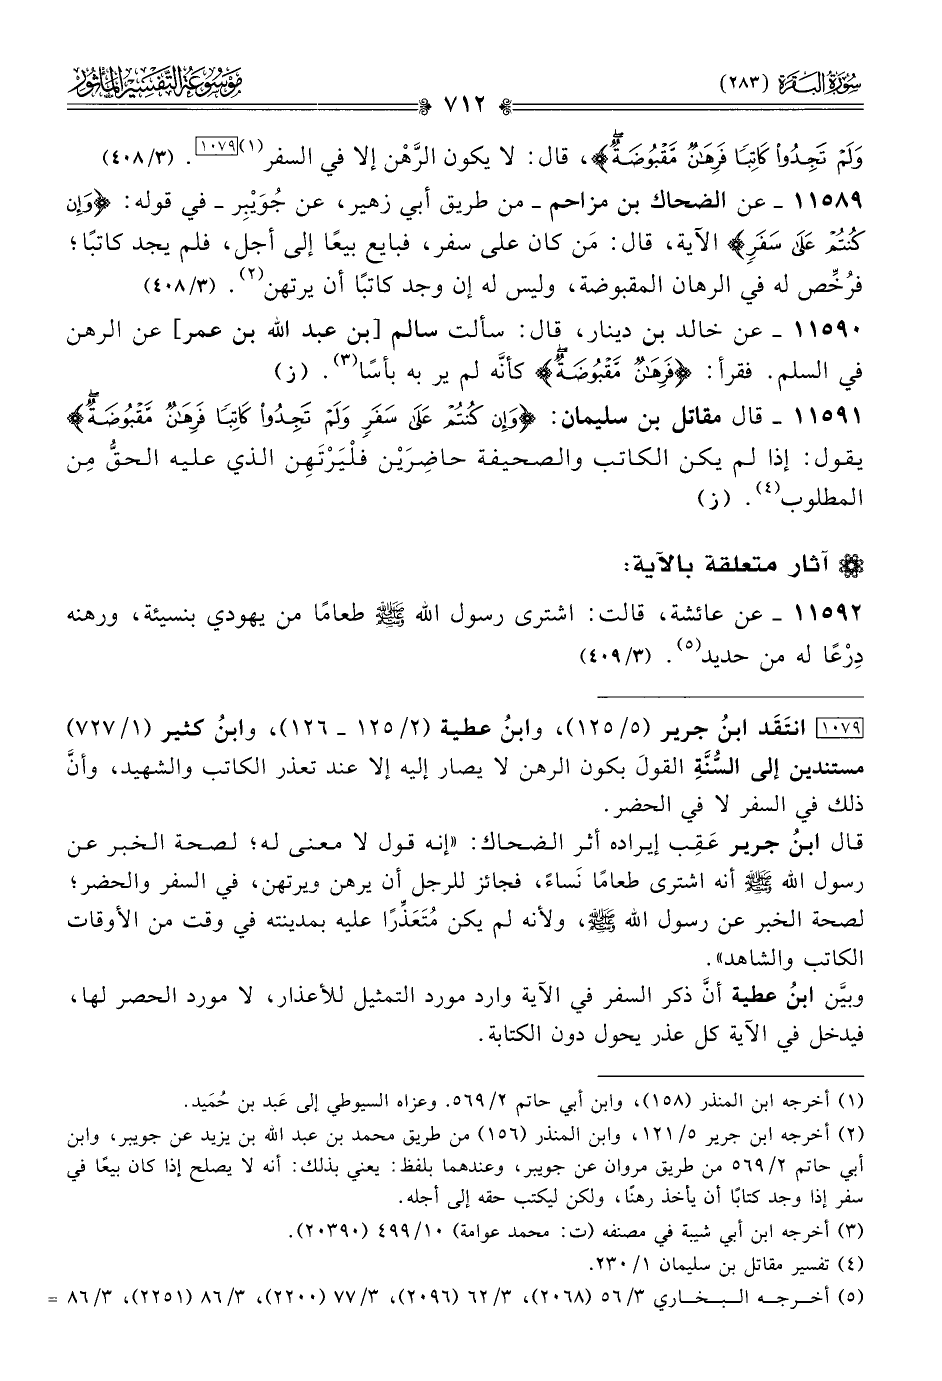 سُورَةُ البَقَرَةِ (٢٨٣)
مَوْسُوعَةُ التَّفْسِيرِ المَأْثُور
٧١٢
وَلَمْ تَجِدُوا۟ كَاتِبًا فَرِهَٰنٌ مَّقْبُوضَةٌۖ﴾، قال: لا يكون الرَّهْن إلا في السفر(١)[١٠٧٩]. (٤٠٨/٣)
١١٥٨٩ ـ عن الضحاك بن مزاحم ـ من طريق أبي زهير، عن جُوَيْبِر ـ في قوله: ﴿وَإِن
كُنتُمْ عَلَىٰ سَفَرٍ﴾ الآية، قال: مَن كان على سفر، فبايع بيعًا إلى أجل، فلم يجد كاتبًا؛
فرُخِّص له في الرهان المقبوضة، وليس له إن وجد كاتبًا أن يرتهن(٢). (٤٠٨/٣)
١١٥٩٠ ـ عن خالد بن دينار، قال: سألت سالم [بن عبد الله بن عمر] عن الرهن
في السلم. فقرأ: ﴿فَرِهَٰنٌ مَّقْبُوضَةٌۖ﴾ كأنَّه لم ير به بأسًا(٣). (ز)
١١٥٩١ ـ قال مقاتل بن سليمان: ﴿وَإِن كُنتُمْ عَلَىٰ سَفَرٍ وَلَمْ تَجِدُوا۟ كَاتِبًا فَرِهَٰنٌ مَّقْبُوضَةٌۖ﴾
يقول: إذا لم يكن الكاتب والصحيفة حاضِرَيْن فلْيَرْتَهِن الذي عليه الحقُّ مِن
المطلوب(٤). (ز)
آثار متعلقة بالآية:
١١٥٩٢ ـ عن عائشة، قالت: اشترى رسول الله ﷺ طعامًا من يهودي بنسيئة، ورهنه
دِرْعًا له من حديد(٥). (٤٠٩/٣)
[١٠٧٩] انتَقَد ابنُ جرير (١٢٥/٥)، وابنُ عطية (١٢٥/٢ ـ ١٢٦)، وابنُ كثير (٧٢٧/١)
مستندين إلى السُّنَّةِ القولَ بكون الرهن لا يصار إليه إلا عند تعذر الكاتب والشهيد، وأنَّ
ذلك في السفر لا في الحضر.
قال ابنُ جرير عَقِب إيراده أثر الضحاك: «إنه قول لا معنى له؛ لصحة الخبر عن
رسول الله ﷺ أنه اشترى طعامًا نَساءً، فجائز للرجل أن يرهن ويرتهن، في السفر والحضر؛
لصحة الخبر عن رسول الله ﷺ، ولأنه لم يكن مُتَعَذِّرًا عليه بمدينته في وقت من الأوقات
الكاتب والشاهد».
وبيَّن ابنُ عطية أنَّ ذكر السفر في الآية وارد مورد التمثيل للأعذار، لا مورد الحصر لها،
فيدخل في الآية كل عذر يحول دون الكتابة.
(١) أخرجه ابن المنذر (١٥٨)، وابن أبي حاتم ٥٦٩/٢. وعزاه السيوطي إلى عَبد بن حُمَيد.
(٢) أخرجه ابن جرير ١٢١/٥، وابن المنذر (١٥٦) من طريق محمد بن عبد الله بن يزيد عن جويبر، وابن
أبي حاتم ٥٦٩/٢ من طريق مروان عن جويبر، وعندهما بلفظ: يعني بذلك: أنه لا يصلح إذا كان بيعًا في
سفر إذا وجد كتابًا أن يأخذ رهنًا، ولكن ليكتب حقه إلى أجله.
(٣) أخرجه ابن أبي شيبة في مصنفه (ت: محمد عوامة) ٤٩٩/١٠ (٢٠٣٩٠).
(٤) تفسير مقاتل بن سليمان ٢٣٠/١.
(٥) أخرجه البخاري ٥٦/٣ (٢٠٦٨)، ٦٢/٣ (٢٠٩٦)، ٧٧/٣ (٢٢٠٠)، ٨٦/٣ (٢٢٥١)، ٨٦/٣ =